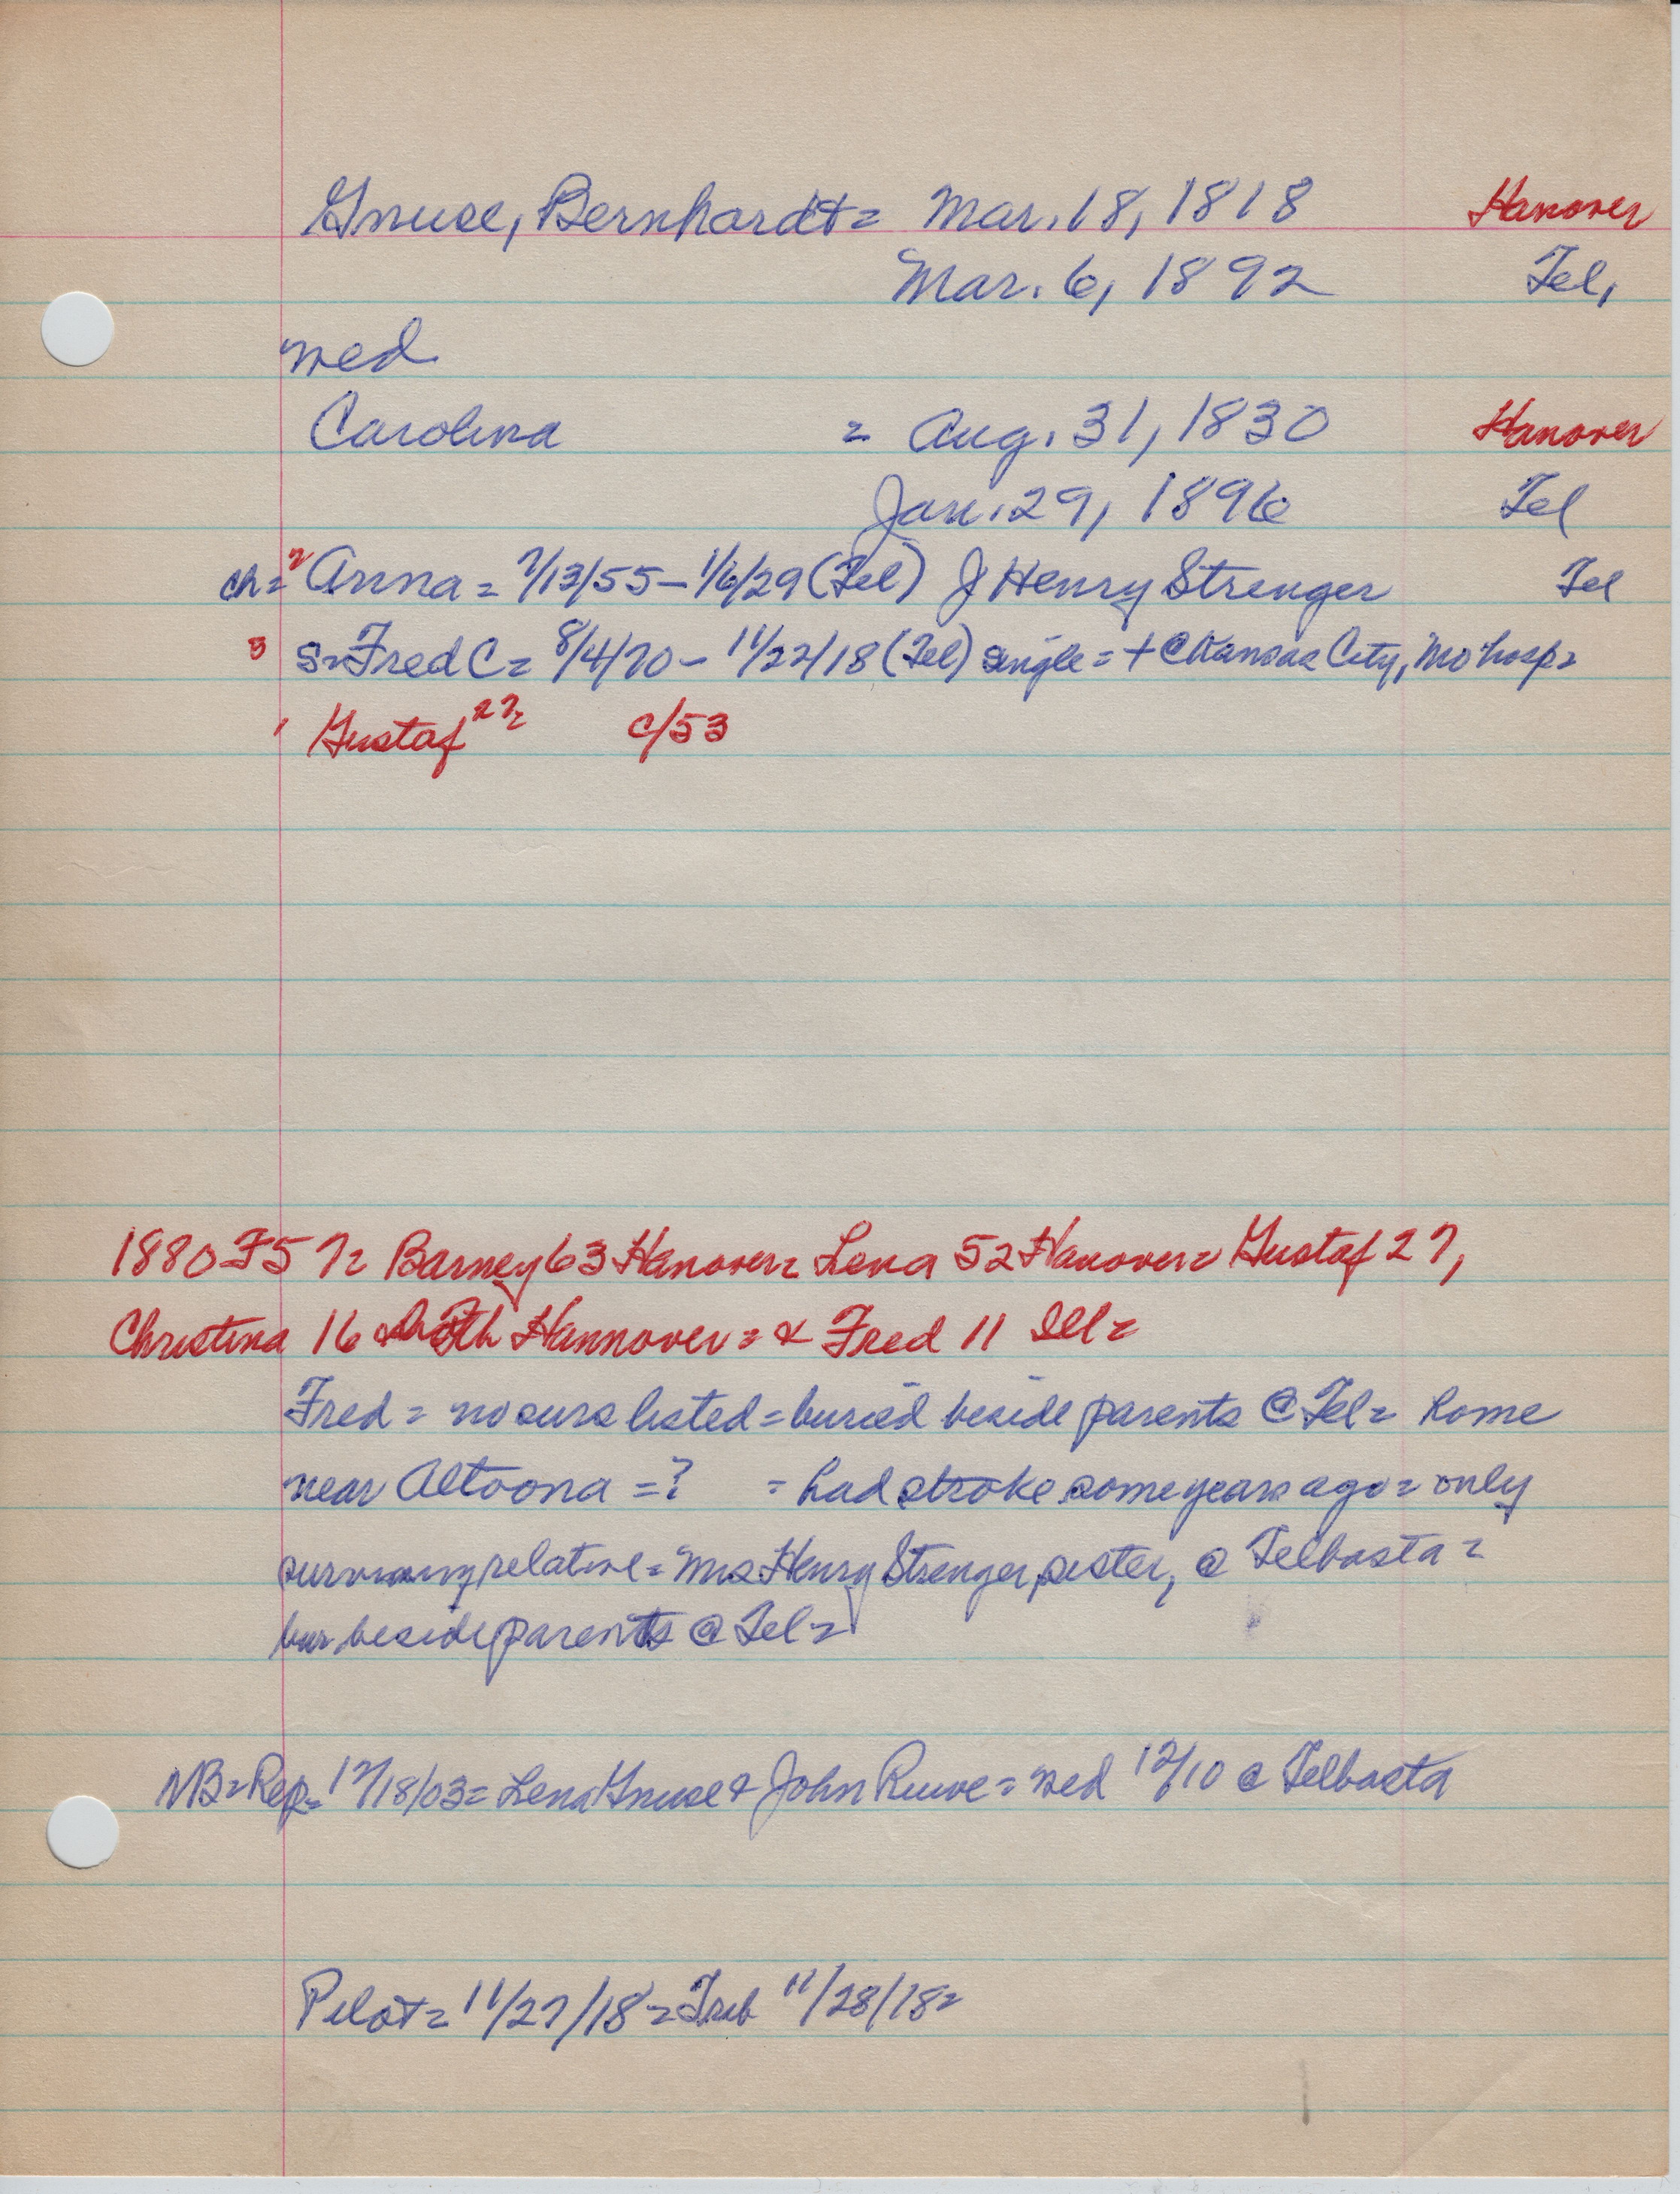 Gnuse, Bernhardt = Mar. 18, 1818 Hanover
Mar. 6, 1892 Tel,
wed
Carolina = Aug. 31, 1830 Hanover
Jan. 29, 1896 Tel
ch = 2 Anna = 7/13/55 - 1/6/29 (Tel) J Henry Strenger Tel
3 S = Fred C = 8/4/70 - 11/22/18 (Tel) single = + @ Kansas City, Mo hosp =
1 Gustaf 27 = c/53
1880 F5 7 = Barney 63 Hanover = Lena 52 Hanover = Gustaf 27,
Christina 16 both Hannover = & Fred 11 Ill =
Fred = no surs listed = buried beside parents @ Tel = home
near Altoona = ? = had stroke some years ago = only
surviving relative = Mrs Henry Strenger, sister, @ Telbasta =
bur beside parents @ Tel =
NB = Rep = 12/18/03 = Lena Gnuse & John Ruwe = wed 12/10 @ Telbasta
Pilot = 11/27/18 = Trib 11/28/18 =